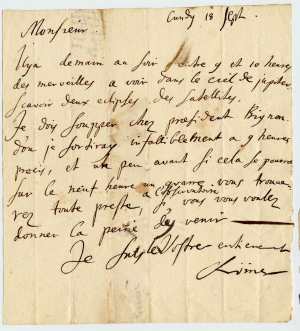 Lundy 18 Sept.
Monsieur.
Il y a demain au soir entre 9 et 10 heures
des merveilles a voir dans le ciel de jupiter
scavoir deux eclipses des satellites.
Je dois soupper chez president Bignon
dou je sortiray infalliblement a 9 heures
precis, et un peu avant si cela se pourra
sur le neuf heure un quarré vous trouve
a l'observatoire
rez toute preste, si vous vous voulez
donner la peine de venir
Je suis Vostre entierement
Römer